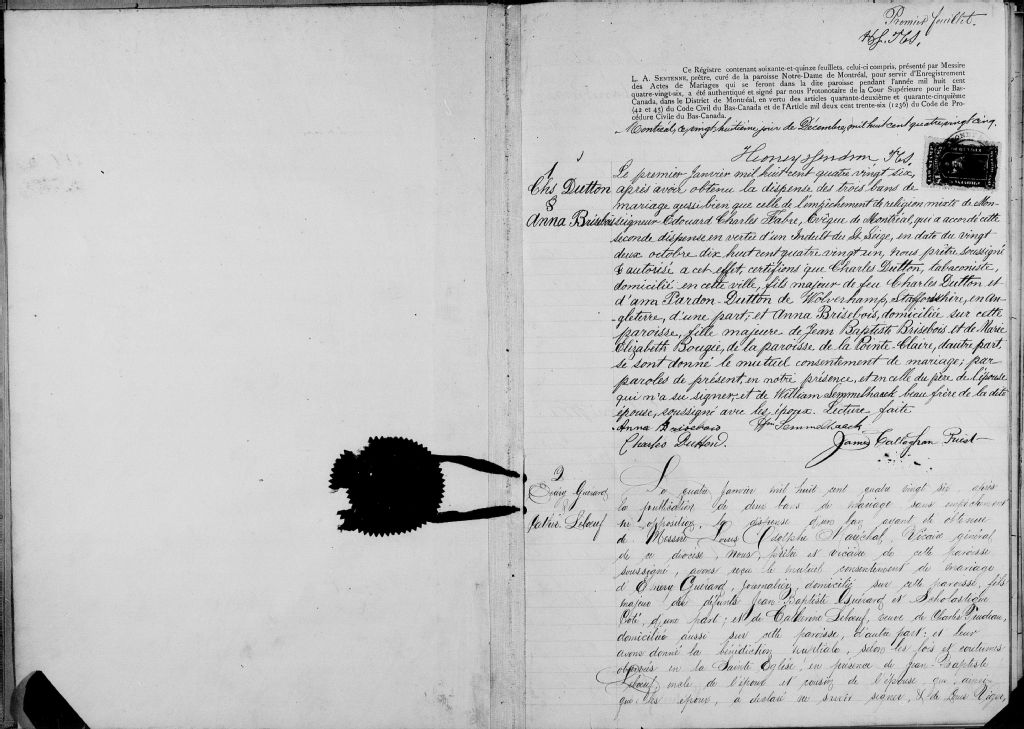 Premier feuillet.
Ce Régistre contenant soixante-et-quinze feuillets, celui-ci compris, présenté par Messire
L. A. SENTENNE, prêtre, curé de la paroisse Notre-Dame de Montréal, pour servir d'Enregistrement
des Actes de Mariages qui se feront dans la dite paroisse pendant l'année mil huit cent
quatre-vingt-six, a été authentiqué et signé par nous Protonotaire de la Cour Supérieure pour le Bas-
Canada, dans le District de Montréal, en vertu des articles quarante-deuxième et quarante-cinquième
(42 et 45) du Code Civil du Bas-Canada et de l'Article mil deux cent trente-six (1236) du Code de Pro-
cédure Civile du Bas-Canada.
Montréal, ce vingt huitième jour de Décembre, mil huit cent quatre vingt cinq.
1
Chs Dutton
&
Anna Brisebois
Le premier Janvier mil huit cent quatre vingt six,
après avoir obtenu la dispense des trois bans de
mariage aussi bien que celle de l'empêchement de religion mixte de Mon-
seigneur Edouard Charles Fabre, Evêque de Montréal, qui a accordé cette
seconde dispense en vertu d'un Indult du St. Siège, en date du vingt
deux octobre dix huit cent quatre vingt un, nous prêtre soussigné
& autorisé a cet effet, certifions que Charles Dutton, tabaconiste,
domicilié en cette ville, fils majeur de feu Charles Dutton et
d'ann Pardon-Dutton de Wolverhamp, Staffordshire, en An-
gleterre, d'une part; et Anna Brisebois, domiciliée sur cette
paroisse, fille majeure de Jean Baptiste Brisebois et de Marie
Elizabeth Bougie, de la paroisse de la Pointe Claire, d'autre part
se sont donné le mutuel consentement de mariage; par
paroles de présent, en notre présence, et en celle du père de l'épouse
qui n'a su signer, et de William Semmelhaack beau frère de la dite
épouse, soussigné avec les époux. Lecture faite
Anna Brisebois Wm Semmelhaack
Charles Dutton. James Callaghan Priest
2
Emery Guérard
&
Cathrie. Lebœuf
Le quatre Janvier mil huit cent quatre vingt six, après
la publication de deux bans de mariage sans empêchement
ni opposition, la dispense d'un ban ayant été obtenue
de Messire Louis Adolphe Maréchal, Vicaire général
de ce diocèse, Nous, prêtre et vicaire de cette paroisse
soussigné, avons reçu le mutuel consentement de mariage
d'Emery Guérard, journalier, domicilié sur cette paroisse, fils
majeur des défunts Jean-Baptiste Guérard et Scholastique
Coté, d'une part; et de Catherine Lebœuf, veuve de Charles
domiciliée aussi sur cette paroisse, d'autre part: et leur
avons donné la bénédiction nuptiale, selon les lois et coutumes
observés en la Sainte Eglise, en présence de Jean-Baptiste
Lebœuf de l'époux et cousin de l'épouse qui ainsi
que les époux, a déclaré ne savoir signer, & de